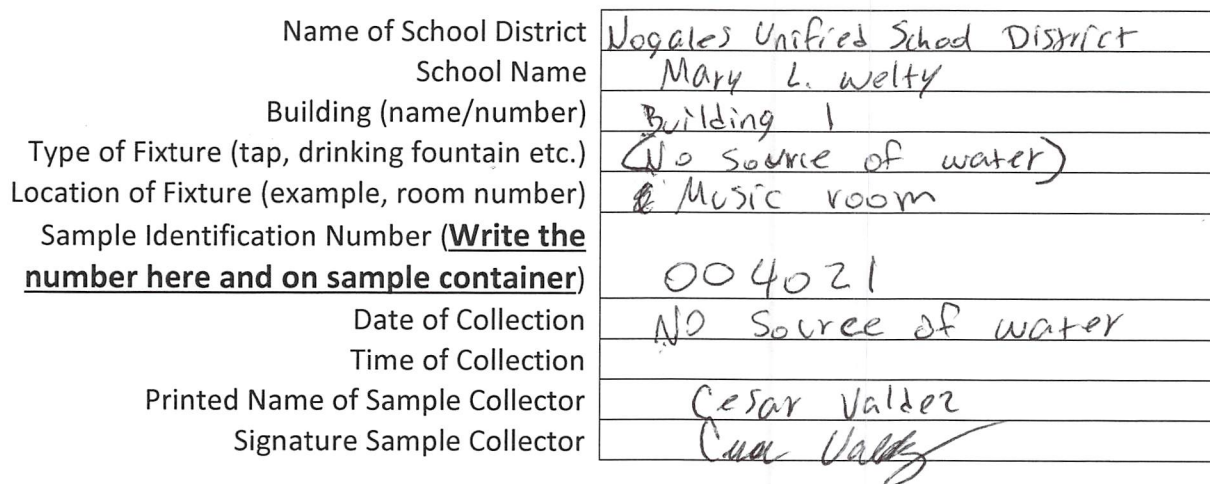 Name of School District Nogales Unified School District
School Name Mary L. Welty
Building (name/number) Building 1
Type of Fixture (tap, drinking fountain etc.) (No source of water)
Location of Fixture (example, room number) Music room
Sample Identification Number (Write the
number here and on sample container) 004021
Date of Collection No Source of water
Time of Collection
Printed Name of Sample Collector Cesar Valdez
Signature Sample Collector